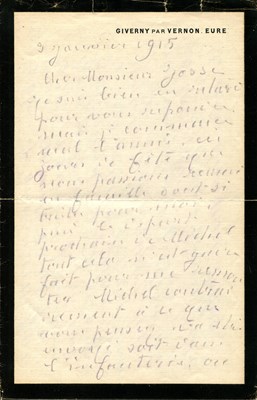 GIVERNY PAR VERNON, EURE
3 janvier 1915
Cher Monsieur Josse
je suis bien en retard
pour vous répondre
mais j'ai commencé
mal l'année, ces
jours de fête que
nous passions réunis
en famille sont si
tristes pour moi,
puis le départ
prochain de Michel
tout cela n'est guère
fait pour me remon
ter Michel contrai
rement à ce que
vous pensez
envoyé soit dans
l'infanterie, ou